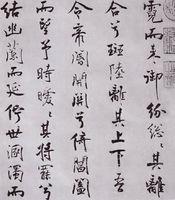 霓而来御紛總々其離
合兮斑陸離其上下吾
令帝閽開關兮倚閶闔
而望予時曖々其將罷兮
結幽蘭而延佇世溷濁而